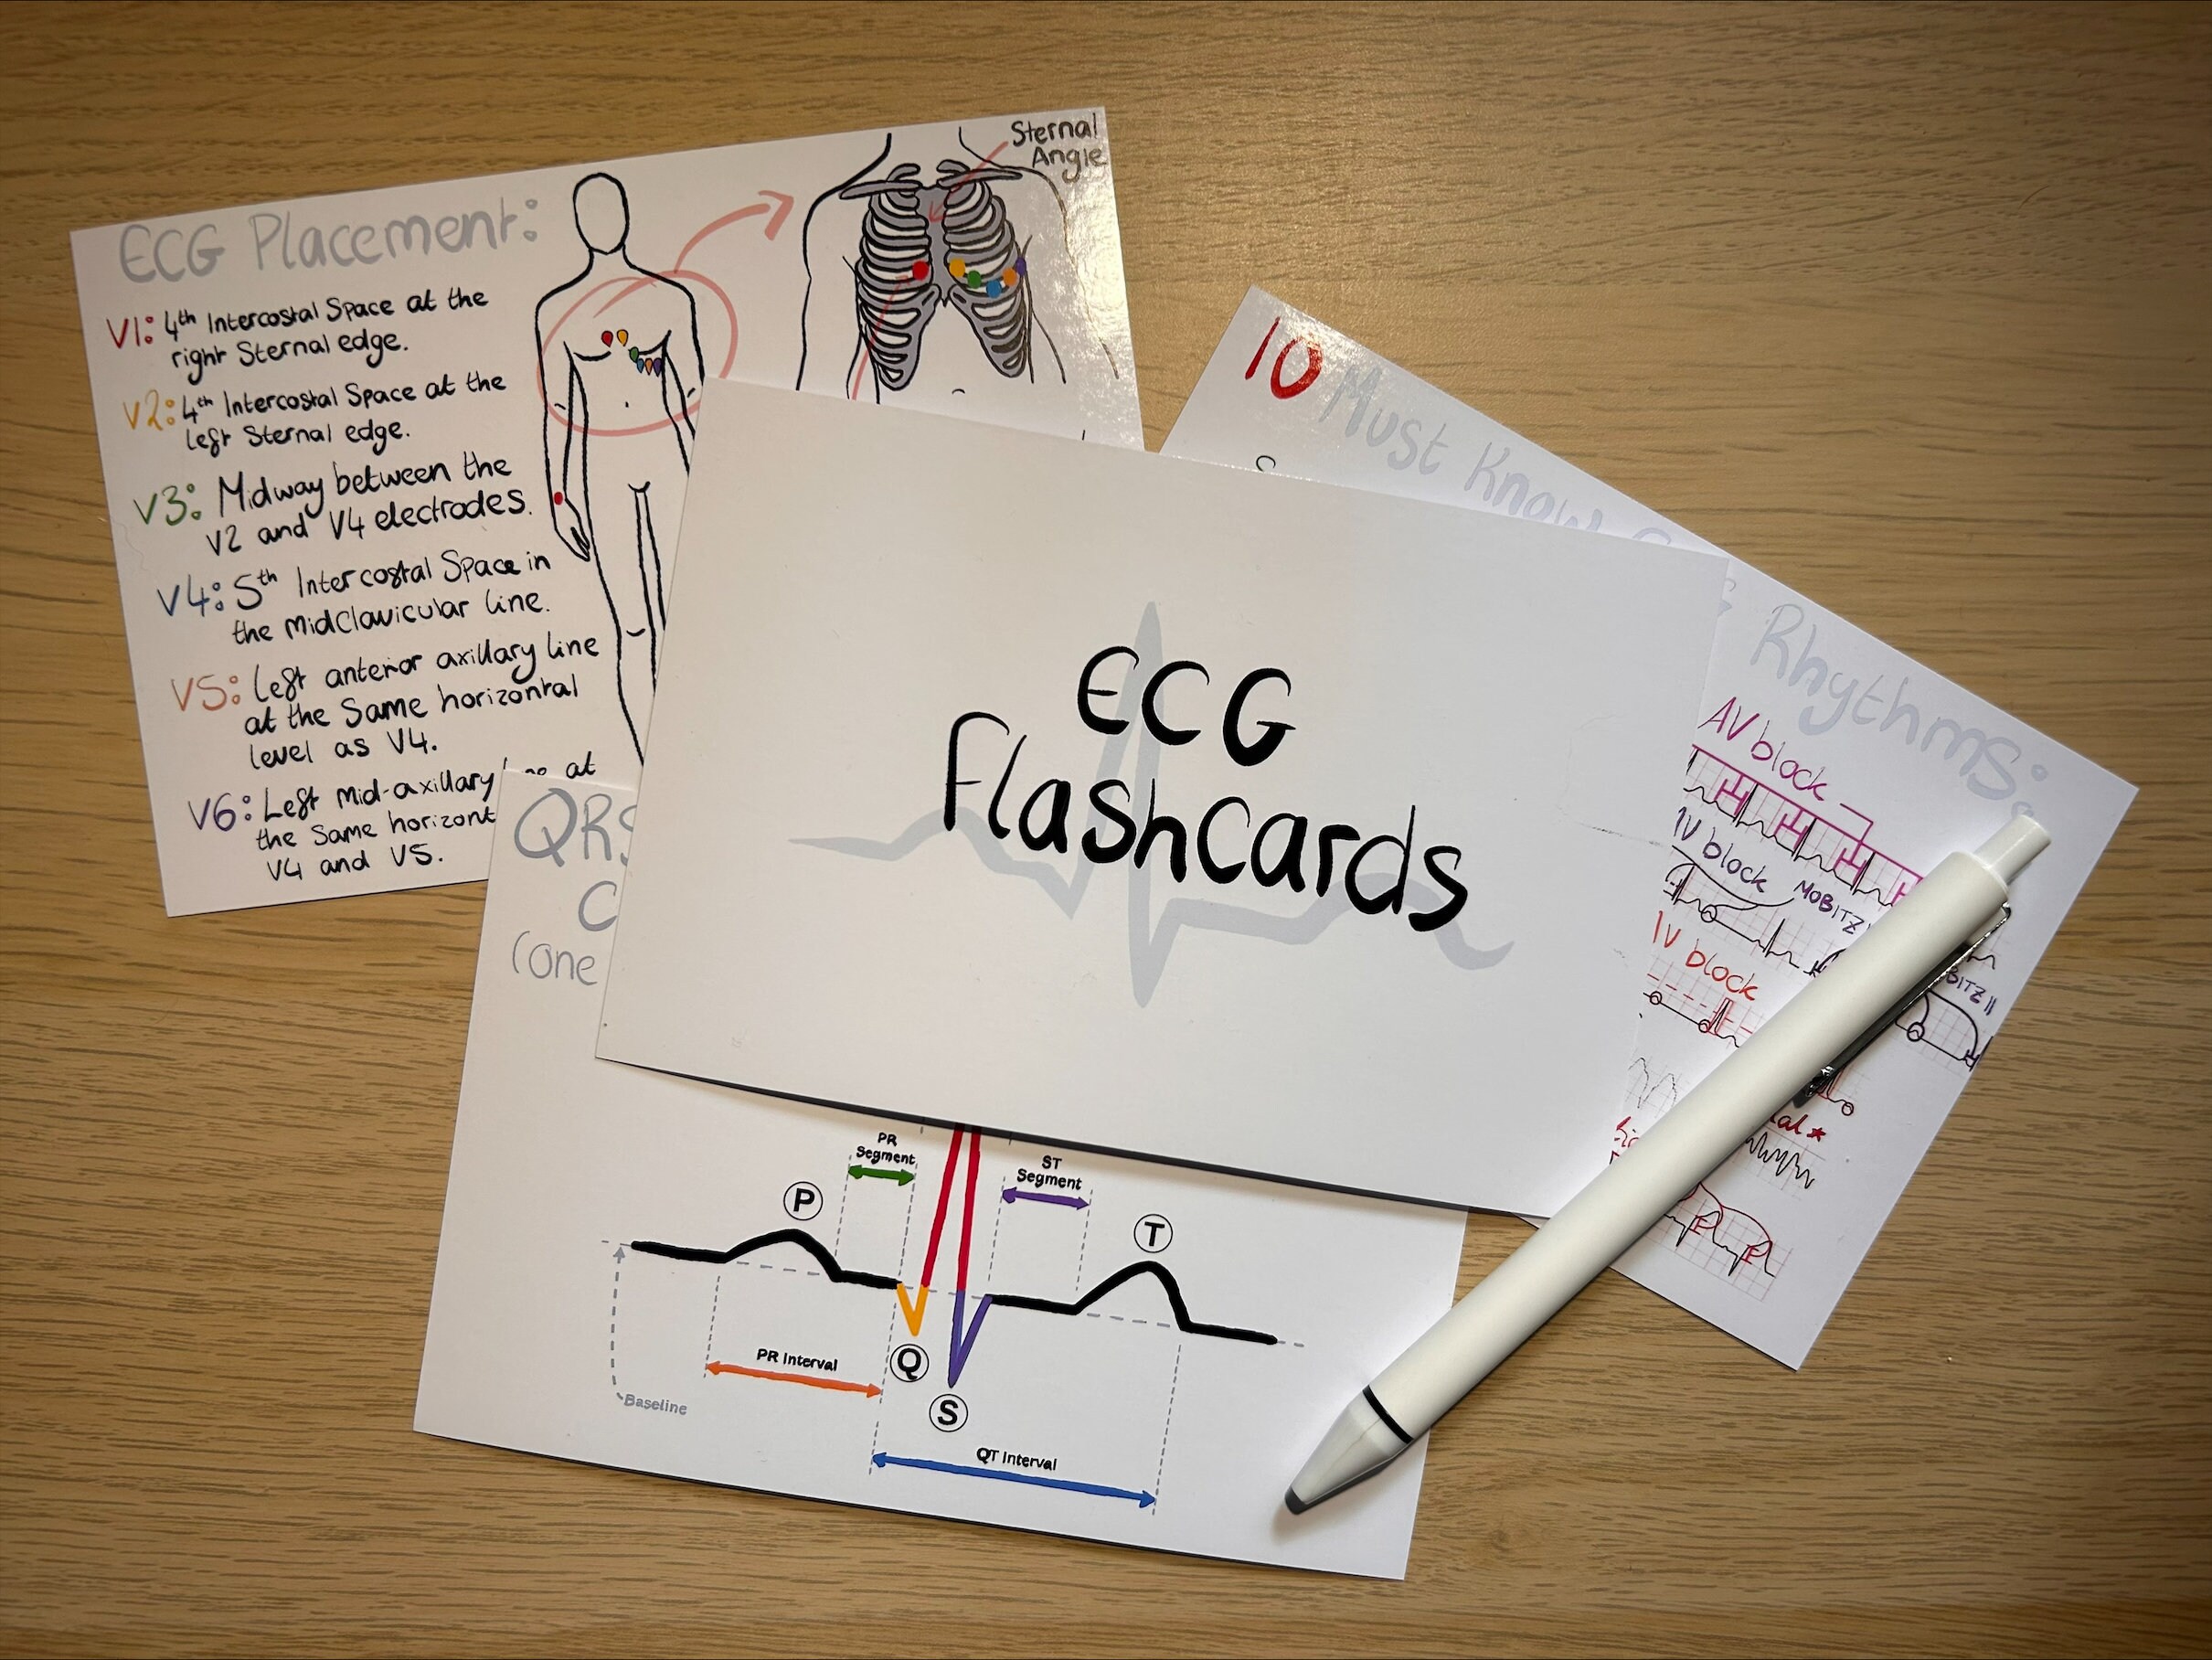 ECG Placement:
V1: 4th Intercostal Space at the
right Sternal edge.
V2: 4th Intercostal Space at the
left Sternal edge.
V3: Midway between the
V2 and V4 electrodes.
V4: 5th Intercostal Space in
the midclavicular line.
V5: Left anterior axillary line
at the Same horizontal
level as V4.
V6: Left Mid-axillary at
the Same horizont
V4 and V5.
Sternal
Angle
10 Must Know
Rhythms:
AV block
AV block MOBITZ
BITZ II
AV block
ECG
Flashcards
QRS
C
(one
PR
Segment
ST
Segment
P
T
PR Interval
Q
S
Baseline
QT Interval